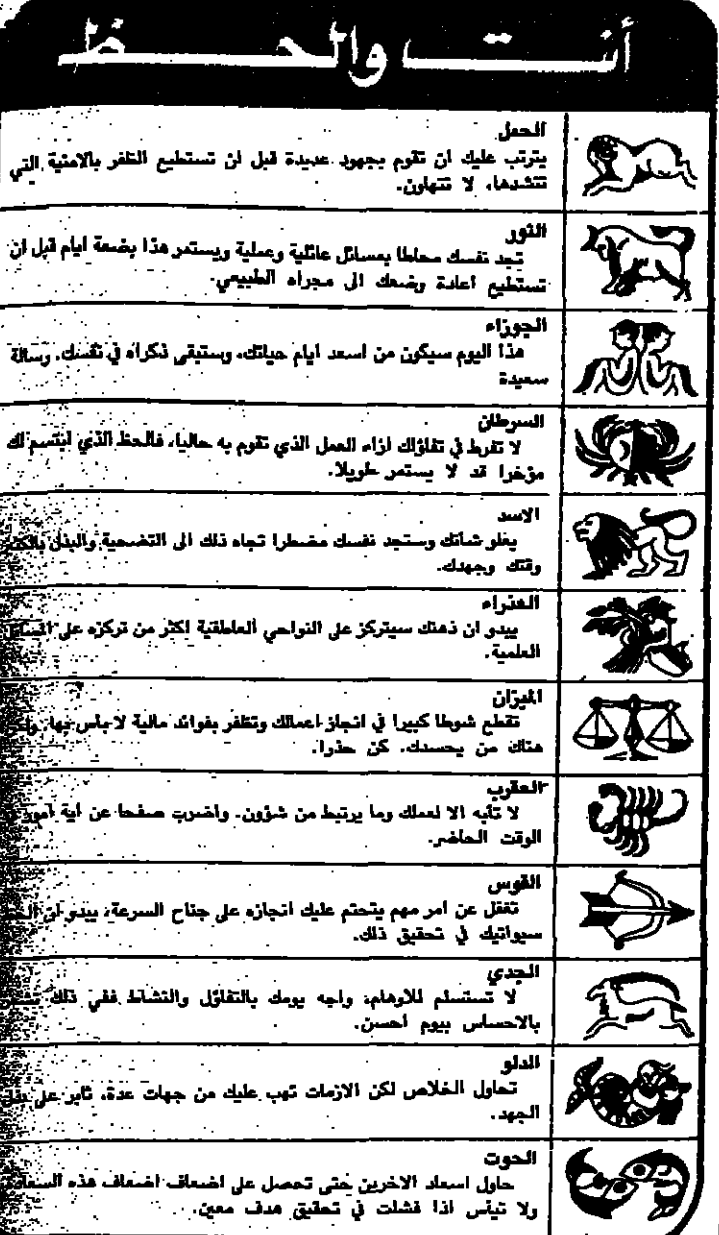 أنت والحظ
الحمل
يترتب عليك ان تقوم بجهود عديدة قبل ان تستطيع الظفر بالامنية التي
تنشدها، لا تتهاون.
الثور
تجد نفسك محاطا بمسائل عائلية وعملية ويستمر هذا بضعة ايام قبل ان
تستطيع اعادة وضعك الى مجراه الطبيعي.
الجوزاء
هذا اليوم سيكون من اسعد ايام حياتك، وستبقى ذكراه في نفسك. رسالة
سعيدة
السرطان
لا تفرط في تفاؤلك ازاء العمل الذي تقوم به حاليا، فالحظ الذي ابتسم لك
مؤخرا قد لا يستمر طويلا.
الاسد
يعلو شانك وستجد نفسك مضطرا تجاه ذلك الى التضحية والبذل
وقتك وجهدك.
العذراء
يبدو ان ذهنك سيتركز على النواحي العاطفية اكثر من تركزه على
العلمية.
الميزان
تقطع شوطا كبيرا في انجاز اعمالك وتظفر بفوائد مالية لا باس بها.
هناك من يحسدك. كن حذرا.
العقرب
لا تأبه الا لعملك وما يرتبط من شؤون. واضرب صفحا عن اية امور
الوقت الحاضر.
القوس
تغفل عن امر مهم يتحتم عليك انجازه على جناح السرعة، يبدو ان
سيواتيك في تحقيق ذلك.
الجدي
لا تستسلم للاوهام، واجه يومك بالتفاؤل والنشاط ففي ذلك
بالاحساس بيوم احسن.
الدلو
تحاول الخلاص لكن الازمات تهب عليك من جهات عدة، ثابر على
الجهد.
الحوت
حاول اسعاد الاخرين حتى تحصل على اضعاف اضعاف هذه
ولا تيئس اذا فشلت في تحقيق هدف معين.